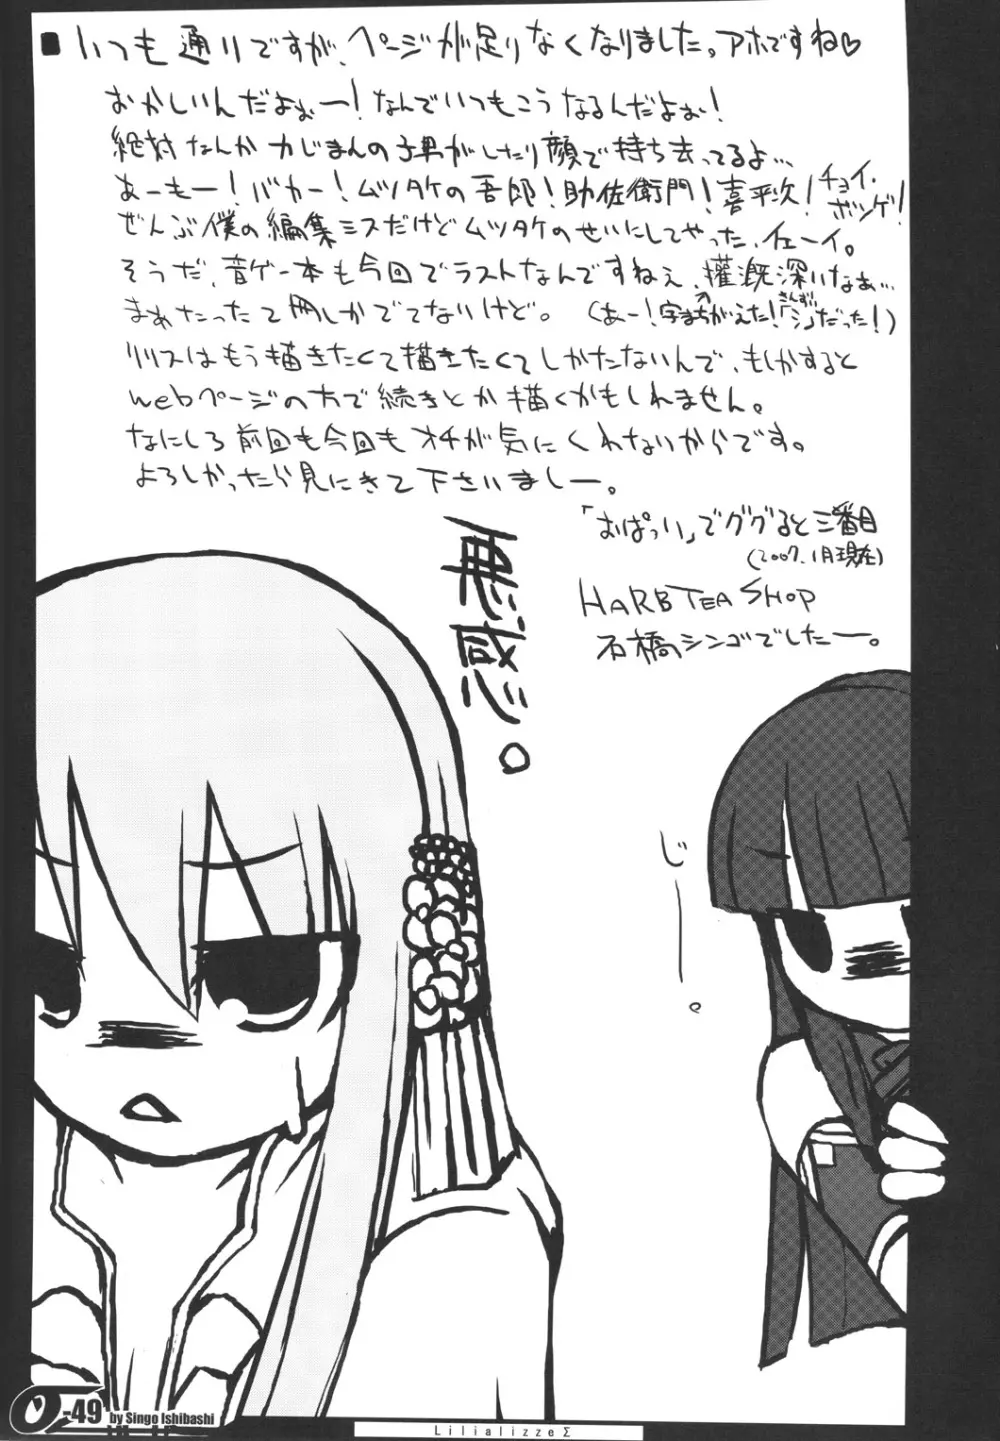 ■いつも通りですが、ページが足りなくなりました。アホですね♡
おかしいんだよぉー!なんでいつもこうなるんだよぉ!
絶対なんかカじまんの子男がしたり顔で持ち去ってるよ…
あーもー!バカー!ムツタケの吾郎!助佐衛門!喜平次!チョイ・ボツゲ!
ぜんぶ僕の編集ミスだけどムツタケのせいにしてやった、イェーイ。
そうだ、音ゲー本も今回でラストなんですねぇ、擢漑深いなぁ…
まぁたったて冊しかでてないけど。(あー!字まちがえた!「シ」だった!)
さんずい
リリスはもう描きたくて描きたくてしかたないんで、もしかすると
webページの方で続きとか描くかもしれません。
なにしろ前回も今回もオチが気にくわないからです。
よろしかったら見にきて下さいましー。
「おぱっい」でググると三番目
(2007.1月現在)
HARB TEA SHOP
石橋シンゴでしたー。
悪感。
じー。
σ-49 by Singo Ishibashi
LilializzeΣ